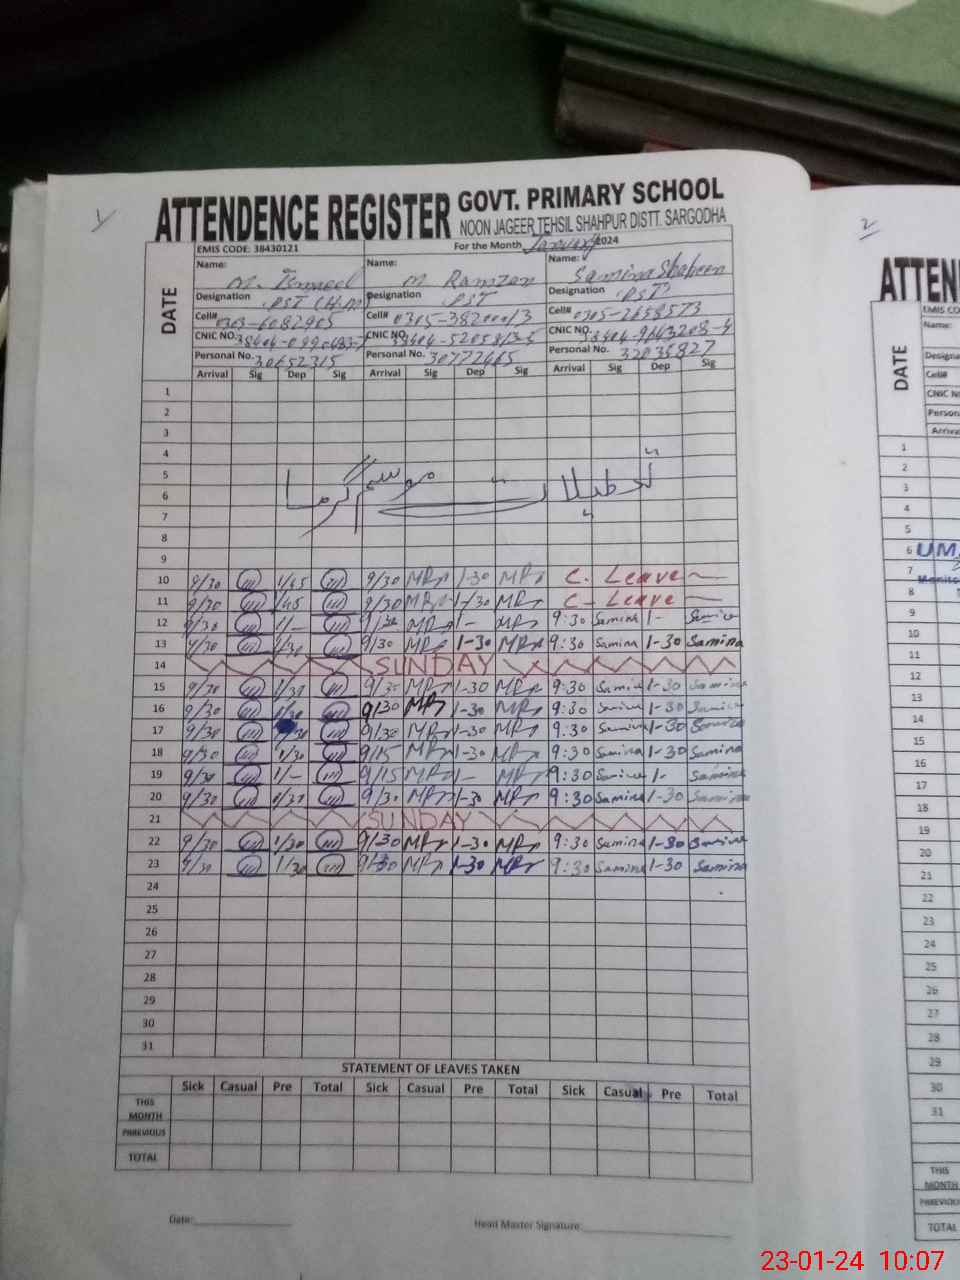 ATTENDENCE REGISTER GOVT. PRIMARY SCHOOL
NOON JAGEER TEHSIL SHAHPUR DISTT. SARGODHA
EMIS CODE: 38430121 For the Month January 2024
DATE
Name: M. Ismaeel Name: M Ramzan Name: Samina Shaheen
Designation PST (H.M) Designation PST Designation PST
Cell# 0303-6082905 Cell# Cell# 0305-2658573
CNIC NO. CNIC NO. CNIC NO.
Personal No. 30652315 Personal No. 30772665 Personal No. 32035827
Arrival Sig Dep Sig Arrival Sig Dep Sig Arrival Sig Dep Sig
1
2
3
4
5
6
7
تعطیلات موسم گرما
8
9
10 9/30 1/45 9/30 MR 1-30 MR C. Leave
11 9/30 1/45 9/30 MR 1-30 MR C- Leave
12 9/30 1/- MR 1- MR 9:30 Samina 1- Samina
13 9/30 1/30 9/30 MR 1-30 MR 9:30 Samina 1-30 Samina
14 SUNDAY
15 9/30 1/30 9/30 MR 1-30 MR 9:30 Samina 1-30 Samina
16 9/30 1/30 9/30 MR 1-30 MR 9:30 Samina 1-30 Samina
17 9/30 9/30 MR 1-30 MR 9:30 Samina 1-30 Samina
18 9/30 1/30 9/15 MR 1-30 MR 9:30 Samina 1-30 Samina
19 9/30 1/- 9/15 MR 1- MR 9:30 Samina 1- Samina
20 9/30 1/30 9/30 MR 1-30 MR 9:30 Samina 1-30 Samina
21 SUNDAY
22 9/30 1/30 9/30 MR 1-30 MR 9:30 Samina 1-30 Samina
23 9/30 1/30 9/30 MR 1-30 MR 9:30 Samina 1-30 Samina
24
25
26
27
28
29
30
31
STATEMENT OF LEAVES TAKEN
Sick Casual Pre Total Sick Casual Pre Total Sick Casual Pre Total
THIS MONTH
PHREVIOUS
TOTAL
Date: Head Master Signature:
2
ATTEN
DATE
EMIS CO
Name:
Designa
Cell#
CNIC N
Person
Arrival
1
2
3
4
5
6 UM
7
8
9
10
11
12
13
14
15
16
17
18
19
20
21
22
23
24
25
26
27
28
29
30
31
THIS
MONTH
PHREVIOU
TOTAL
23-01-24 10:07